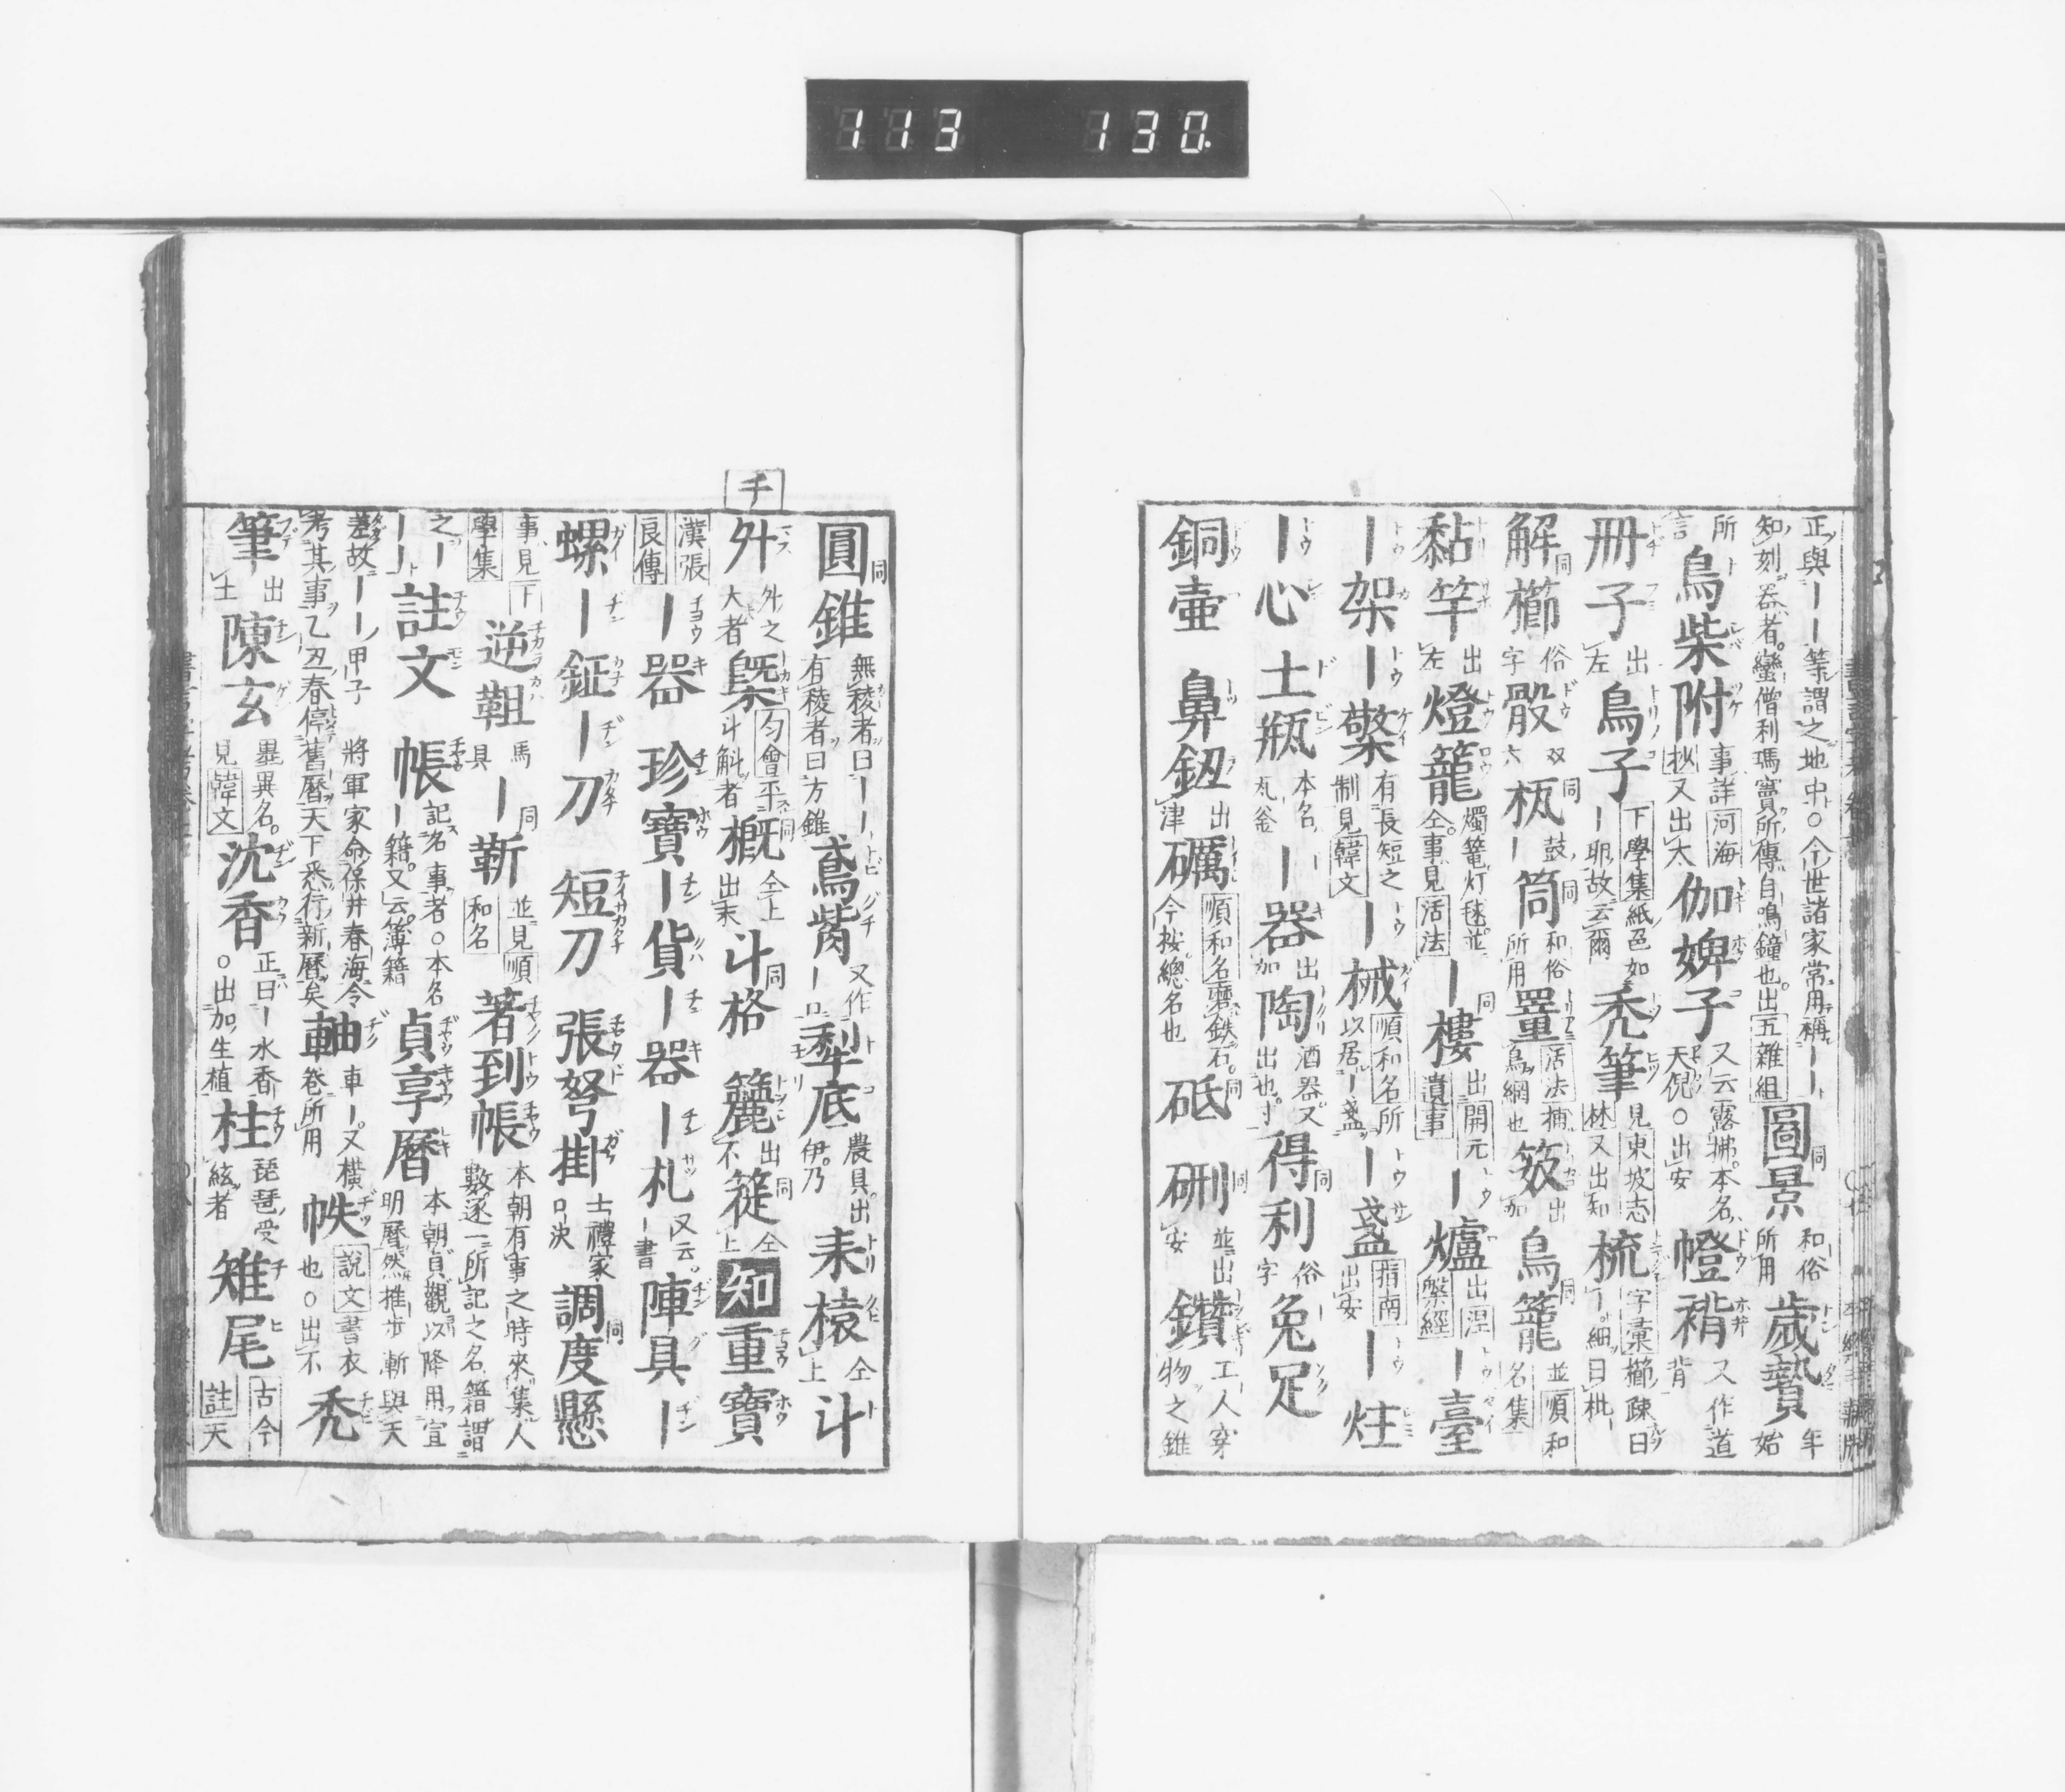 113 130.
正與——等謂之地中○今世諸家常用稱——圖景和俗所用歲贄年始
知刻器者蠻僧利瑪竇所傳自鳴鐘也出五雜組
所言鳥柴附事詳河海抄又出太伽婢子又云露拂本名天倪○出安幐褙又作道背
冊子出左鳥子下學集紙色如—卵故云爾禿筆見東坡志林又出知梳字彙櫛疎曰—細曰枇
解櫛俗字骰双六㭊鼓—筒和俗所用罿活法捕鳥網也笯出加鳥籠並順和名集
黏竿出左燈籠燭篭灯毬並仝事見活法—樓出開元遺事—爐出涅槃經—臺
—架—檠有長短之制見韓文—械順和名所以居—盞—盞指南出安—炷
—心土瓶本名—瓦釜—器出加陶酒器又出也寸得利俗字兔足
銅壷鼻釼出津礪順和名磨鉄石今按總名也砥硎並出安鑽工人穿物之錐
千
圓錐無稜者曰——有稜者曰方錐鳶觜又作—口犁底農具出伊乃耒榬仝上斗
外外之大者㮣匀會平斗斛者概仝上出末斗格簏出不簁仝上知重寶
漢張良傳—器珍寶—貨—器—札又云—書陣具—
螺—鉦—刀短刀張弩掛士禮家口决調度懸
事見下學集逆靼馬具—靳並見順和名著到帳本朝有事之時來集人數逐一所記之名籍謂
之——註文帳記名事者○本名—籍又云簿籍貞享曆本朝貞觀以降用宣明曆然推步漸與天
差故——甲子將軍家命保井春海令考其事乙丑春停舊曆天下悉行新曆矣軸車—又橫卷所用帙說文書衣也○出不禿
筆出土陳玄墨異名見韓文沈香正曰—水香○出加生植柱琵琶受絃者雉尾古今註天